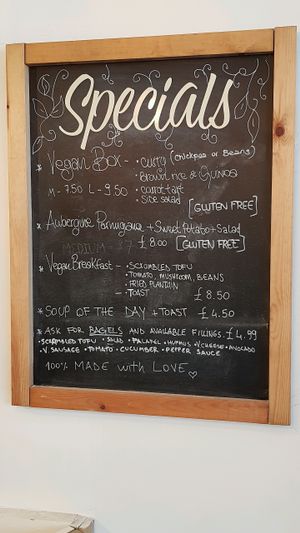 Specials
* Vegan Box - • curry (chickpeas or Beans)
• Brown rice & Quinoa
M - 7.50 L - 9.50 • carrot tart
• Side salad
[GLUTEN FREE]
* Aubergine Parmigiana + Sweet Potato + Salad
MEDIUM £ 8.00 [GLUTEN FREE]
* Vegan Breakfast - • SCRAMBLED TOFU
- • TOMATO, MUSHROOM, BEANS
- FRIED PLANTAIN
- TOAST £ 8.50
* SOUP OF THE DAY + TOAST £ 4.50
* ASK FOR BAGELS AND AVAILABLE FILLINGS £ 4.99
• SCRAMBLED TOFU • SALAD • FALAFEL • HUMMUS • V.CHEESE • AVOCADO
• V. SAUSAGE • TOMATO • CUCUMBER • PEPPER SAUCE
100% MADE with LOVE ♡